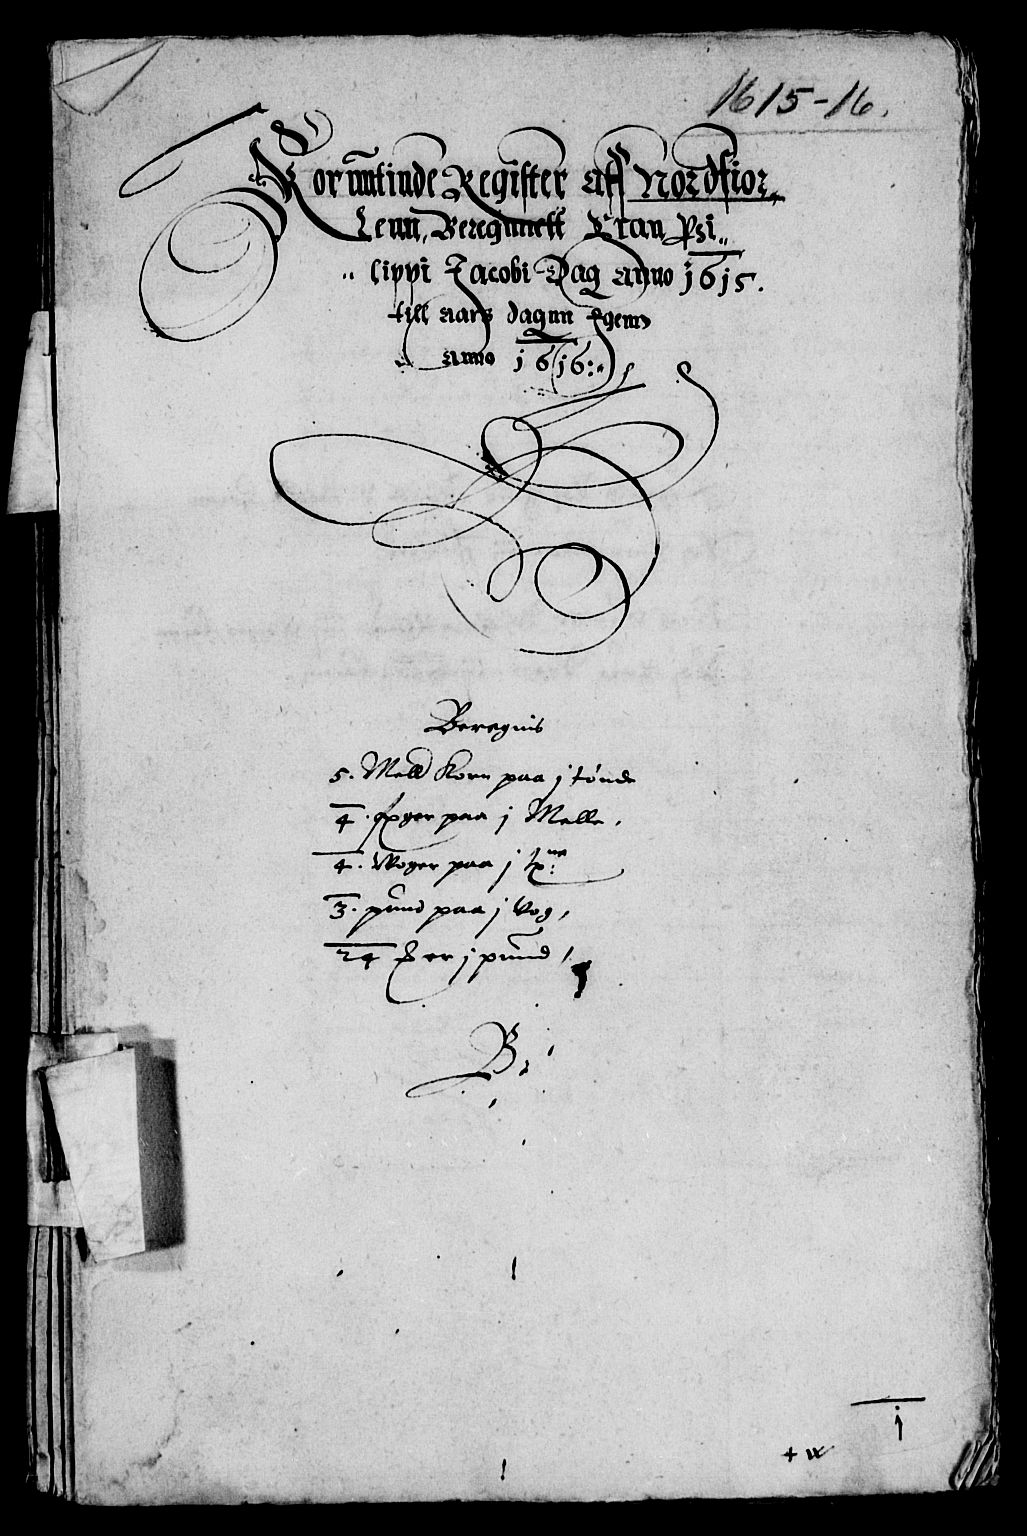 1615-16.
Kornntinde Register aff Nordfior
Lenn, Beregnnett Fran Phi„
„ lippi Jacobi Dag Anno 1615.
till aars dagnn Igenn
Anno 1616:
Beregnis
5. Mell Korn paa j tønde
4. paa j Melle,
4. Woger paa j
3. pund paa j Vog,
24 er j pund,
j